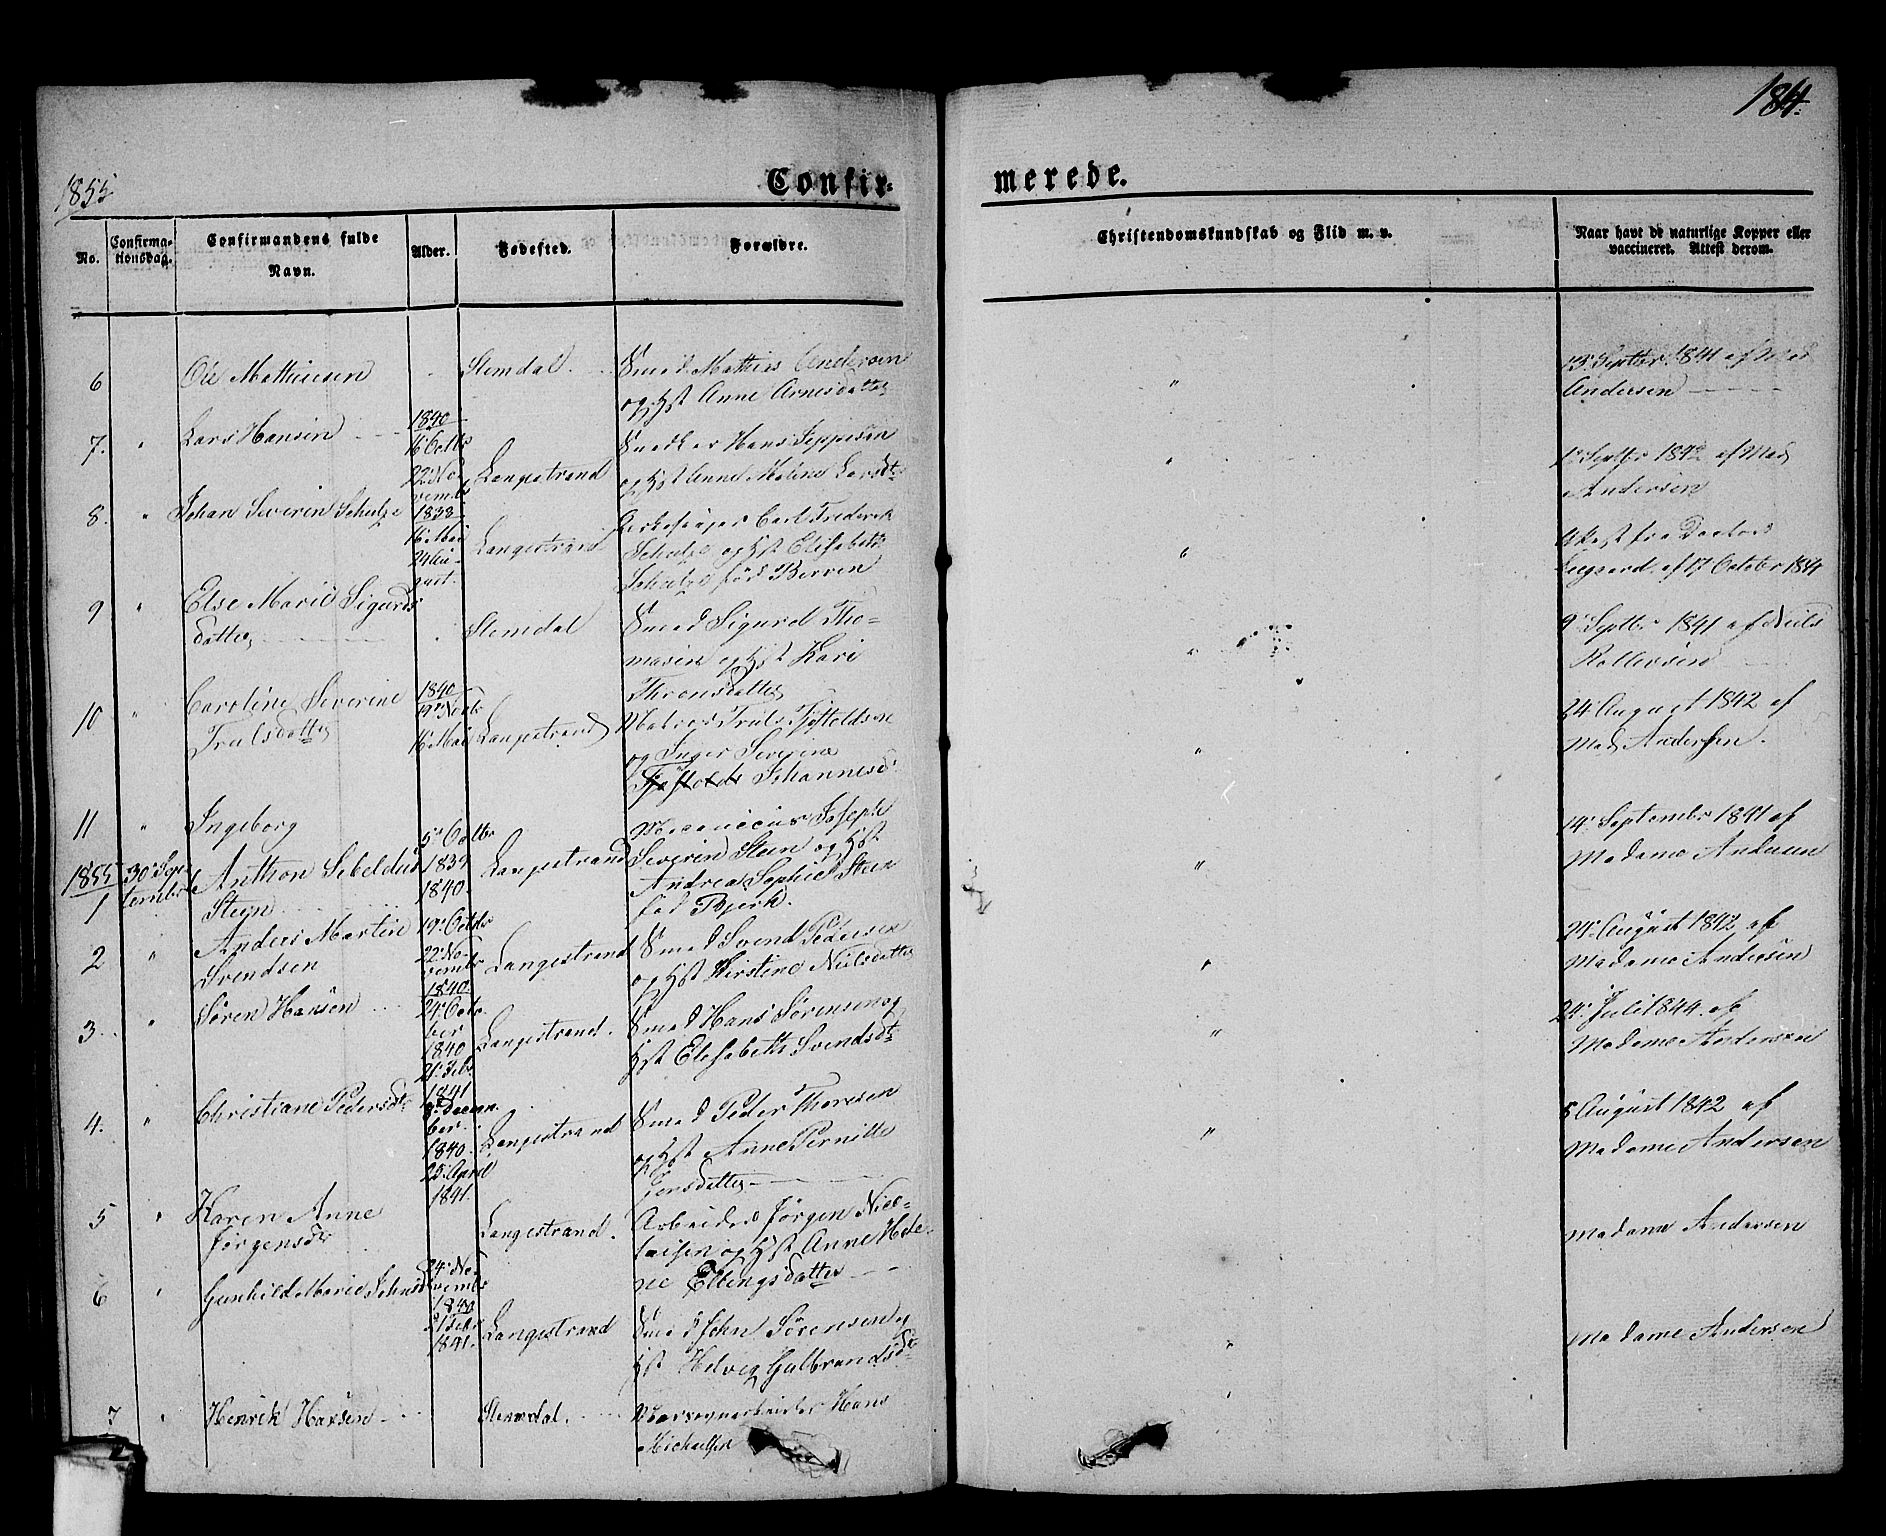 184.
1855
Confir-
merede.
No.
Confirma-
tionsdag.
Confirmandens fulde
Navn.
Alder.
Fødested.
Forældre.
Christendomskundskab og Flid m. v.
Naar havt de naturlige Kopper eller
vaccineret. Attest derom.
6 Ole Mathisen Slemdal. Smed Mathis Andersen
og Hst Anne Arnesdatter
" 13 Septbr. 1841 af Mad
Andersen
7. " Lars Hansen 1840
16 Octbr
22 No-
vembr
Langestrand Snedker Hans Jeppesen
og Hst Anne Malene Larsdt
" Septbr 1842 af Mad
Andersen
8. " Johan Severin Schulze 1838
16 Mai
24 Au-
gust.
Langestrand Carl Frederik
Schulze og Hst Elisabeth
Schulze fød
" Attest fra Doctor
af 17 October 1841
9 " Else Marie Sigurds
datter Slemdal Smed Sigurd Tho-
masen og Hst Kari
Thronsdatter
" 9 Septbr 1841 af Niels
Rollersen
10 " Caroline Severine
Trulsdatter 1840
19 Novbr
16 Mai Langestrand Truls
og Inger Severine
Johannesd.
" 24 August 1842 af
Mad Andersen.
11 " Ingeborg
14 Septembr 1841 af
Madame Andersen
1855
1 30 Sep-
tembr Anthon Sebeldus
Steen 5 Octbr
1839
1840. Langestrand Joseph
Severin Steen og Hst
Andrea Sophie Steen
fød Bjerk.
"
2 " Anders Martin
Svendsen 19 Octbr
22 No-
vembr
1840. Langestrand Smed Svend Pedersen
og Hst Kirstine Nielsdatter
" 24 August 1842 af
Madame Andersen
3. " Søren Hansen 24 Octo-
ber
1840
21 Febr
1841 Langestrand. Smed Hans Sørensen og
Hst Elisabeth Svendsdt
" 24 Juli 1844. af
Madame Andersen
4. " Christiane Pedersdt 8 Decem-
ber.
1840.
25 April
1841. Langestrand Smed Peder Thoresen
og Hst Anne Pernille
Jensdatter
" 8 August 1842 af
Madame Andersen
5 " Karen Anne
Jørgensdt Langestrand. Arbeider Jørgen Nico-
laisen og Hst Anne Hele-
ne Ellingsdatter
Madame Andersen
6 " Gunhild Marie Johnsd 24 No-
vembr
1840
21 Febr
1841. Langestrand Smed John Sørensen og
Hst Helvig Gulbrandsdt
" Madame Andersen
7 " Henrik Hansen Slemdal. Hans
Michaelsen
"